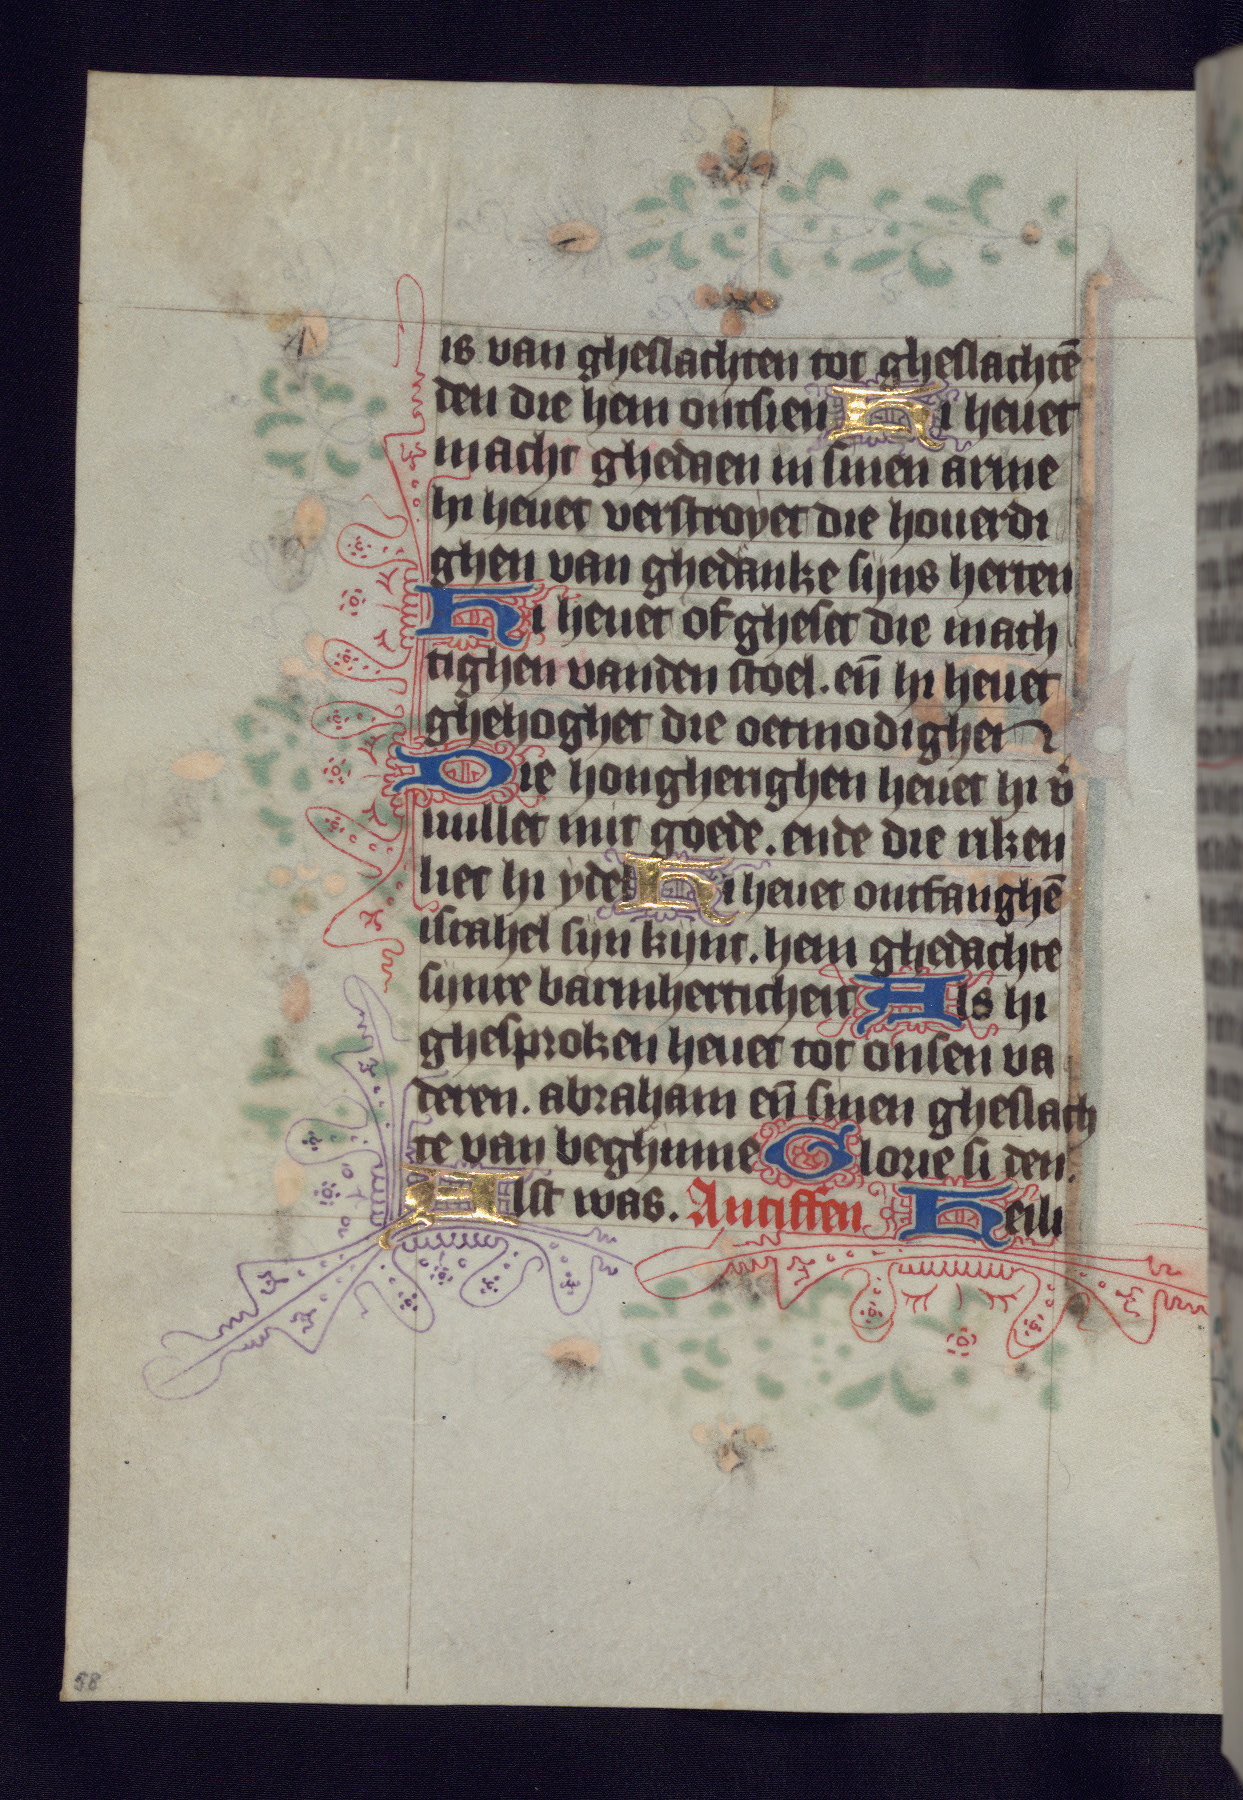 is van gheslachten tot gheslachtē
den die hem ontsien Hi heuet
macht ghedaen in sinen arme
hi heuet verstroyet die houerdi
ghen van ghedanke sijns herten
Hi heuet of gheset die mach
tighen vanden stoel. en̄ hi heuet
ghehoghet die oetmodighen
Die hongherighen heuet hi v̄
uullet mit goede. ende die riken
liet hi ydel Hi heuet ontfanghē
israhel sijn kijnt. hem ghedachte
sijnre barmherticheit Als hi
ghesproken heuet tot onsen va
deren. abraham en̄ sinen gheslach
te van beghinne Glorie si den.
Alst was. Antiffen Heili
58